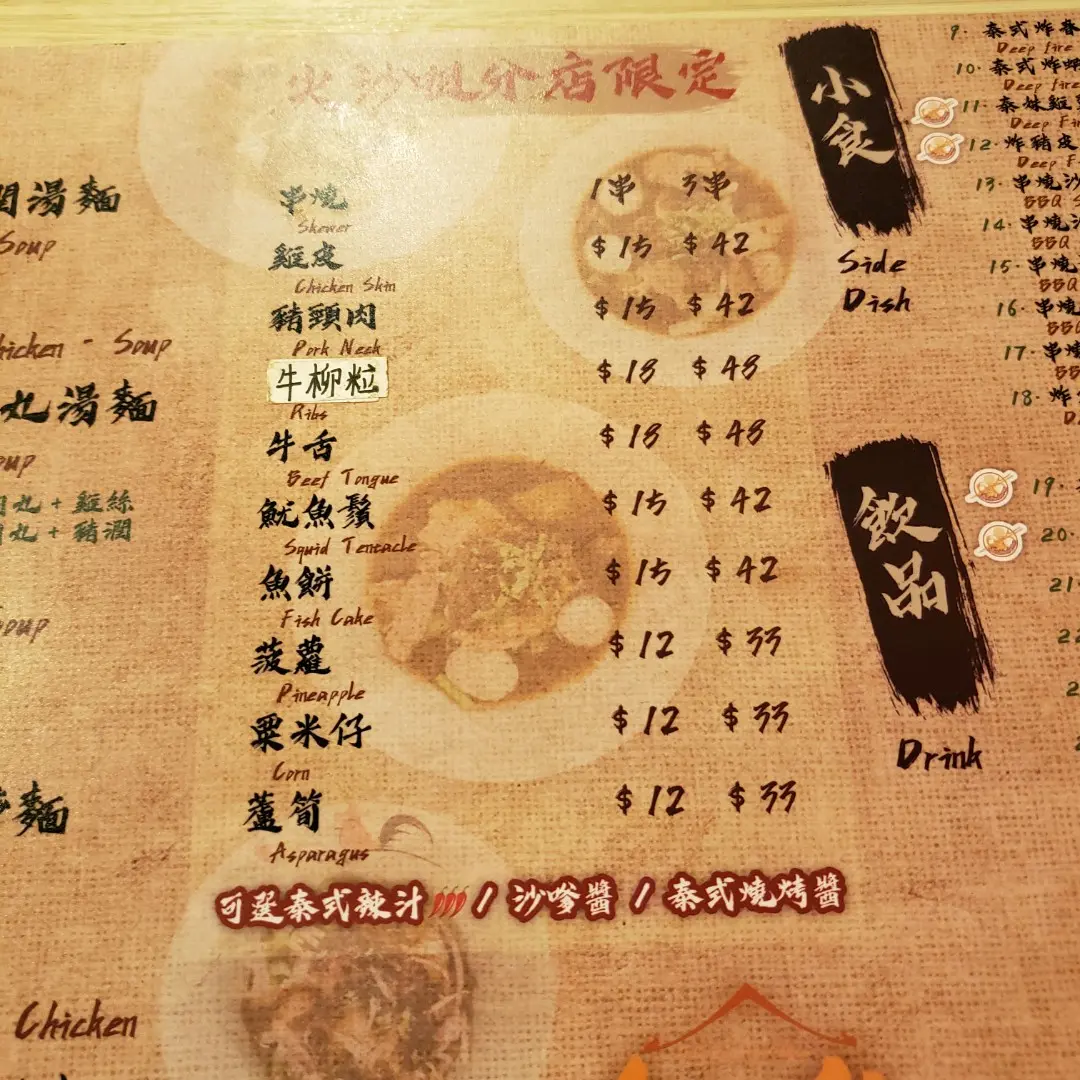 店限定
湯麵
Soup
Chicken - Soup
丸湯麵
丸 + 雞絲
丸 + 豬潤
麵
Chicken
串燒 1串 3串
Skewer
雞皮 $15 $42
Chicken Skin
豬頸肉 $15 $42
Pork Neck
牛柳粒 $18 $48
Ribs
牛舌 $18 $48
Beef Tongue
魷魚鬚 $15 $42
Squid Tentacle
魚餅 $15 $42
Fish Cake
菠蘿 $12 $33
Pineapple
粟米仔 $12 $33
Corn
蘆筍 $12 $33
Asparagus
可選泰式辣汁 / 沙嗲醬 / 泰式燒烤醬
小食
Side
Dish
9. 泰式炸
Deep fire
10. 泰式炸
Deep fire
11. 泰妹雞
Deep
12. 炸豬皮
Deep
13. 串燒沙
BBQ
14. 串燒
BBQ
15. 串燒
BBQ
16. 串燒
BBQ
17. 串燒
18. 炸
飲品
Drink
19.
20.
21